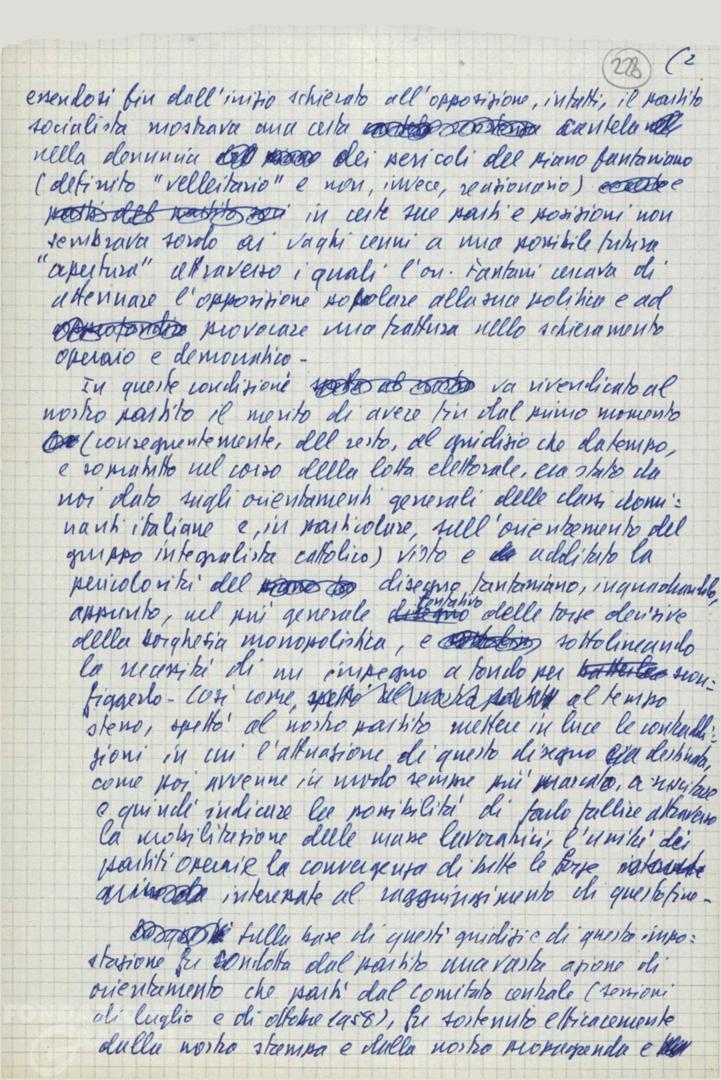 228 (2
essendosi fin dall'inizio schierato all'opposizione, infatti, il partito
socialista mostrava una certa cautela
nella denuncia dei pericoli del piano fanfaniano
(definito "velleitario" e non, invece, reazionario) e
in certe sue parti e posizioni non
sembrava sordo ai vaghi cenni a una possibile futura
"apertura" attraverso i quali l'on. Fanfani cercava di
attenuare l'opposizione popolare alla sua politica e ad
provocare una frattura nello schieramento
operaio e democratico -
In queste condizioni va rivendicato al
nostro partito il merito di avere fin dal primo momento
(conseguentemente, del resto, al giudizio che da tempo,
e soprattutto nel corso della lotta elettorale, era stato da
noi dato sugli orientamenti generali delle classi domi=
nanti italiane e, in particolare, sull'orientamento del
gruppo integralista cattolico) visto e additato la
pericolosità del disegno fanfaniano, inquadrandolo,
appunto, nel più generale tentativo delle forze decisive
della borghesia monopolistica, e sottolineando
la necessità di un impegno a fondo per scon=
figgerlo - Così come, al tempo
stesso, spettò al nostro partito mettere in luce le contraddi=
zioni in cui l'attuazione di questo disegno era destinata,
come poi avvenne in modo sempre più marcato, a suscitare
e quindi indicare la possibilità di farlo fallire attraverso
la mobilitazione delle masse lavoratrici, l'unità dei
partiti operai e la convergenza di tutte le forze
interessate al raggiungimento di questo fine -
sulla base di questi giudizi e di questa impo=
stazione fu condotta dal partito una vasta azione di
orientamento che partì dal comitato centrale (sessioni
di luglio e di ottobre 1958), fu sostenuto efficacemente
dalla nostra stampa e dalla nostra propaganda e